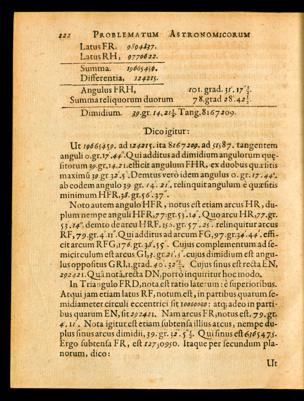 222 PROBLEMATUM ASTRONOMICORUM
Latus FR. 9894837.
Latus RH, 9770622.
Summa. 19665459.
Differentia, 124215.
Angulus FRH, 101. grad. 31′. 17″
Summa reliquorum duorum 78. grad 28′. 42″
Dimidium. 39. gr. 14′. 21″ Tang. 8167209.
Dico igitur:
Ut 19665459. ad 124215. ita 8167209. ad 51587. tangentem
anguli 0. gr. 17′. 44″. Qui additus ad dimidium angulorum quæ-
sitorum 39. gr. 14. 21. efficit angulum FHR, ex duobus quæsitis
maximū 39 gr. 32′. 5″. Demtus verò idem angulus 0. gr. 17′. 44″.
ab eodem angulo 39 gr. 14′. 21″, relinquit angulum è quæsitis
minimum HFR, 38. gr. 56′. 37″.
Noto autem angulo HFR, notus est etiam arcus HR, du-
plum nempe anguli HFR, 77. gr. 53′. 14″. Quo arcu HR, 77. gr.
53′. 14″. demto de arcu HRF, 157. gr. 57′. 25″. relinquitur arcus
RF, 79. gr. 4′. 11″. Qui additus ad arcum FG, 97. gr. 34′. 44″. effi-
cit arcum RFG, 176. gr. 38′. 55″. Cujus complementum ad se-
micirculum est arcus GI, 3. gr. 21′. 5″. cujus dimidium est angu-
lus oppositus GRI, 1. grad. 40′. 32″. Cujus sinus est recta EN,
292421. Quâ notâ, recta DN, porrò inquiritur hoc modo.
In Triangulo FRD, nota est ratio laterum è superioribus.
Atqui jam etiam latus RF, notum est, in partibus quarum se-
midiameter circuli eccentrici sit 10000000: atq; adeo in parti-
bus quarum EN, sit 292421. Nam arcus FR, notus est, 79. gr.
4′. 11″. Nota igitur est etiam subtensa illius arcus, nempe du-
plus sinus arcus dimidii, 39. gr. 32′. 5″. Qui sinus est 6365475.
Ergo subtensa FR, est 12730950. Itaque per secundum pla-
norum, dico:
Ut